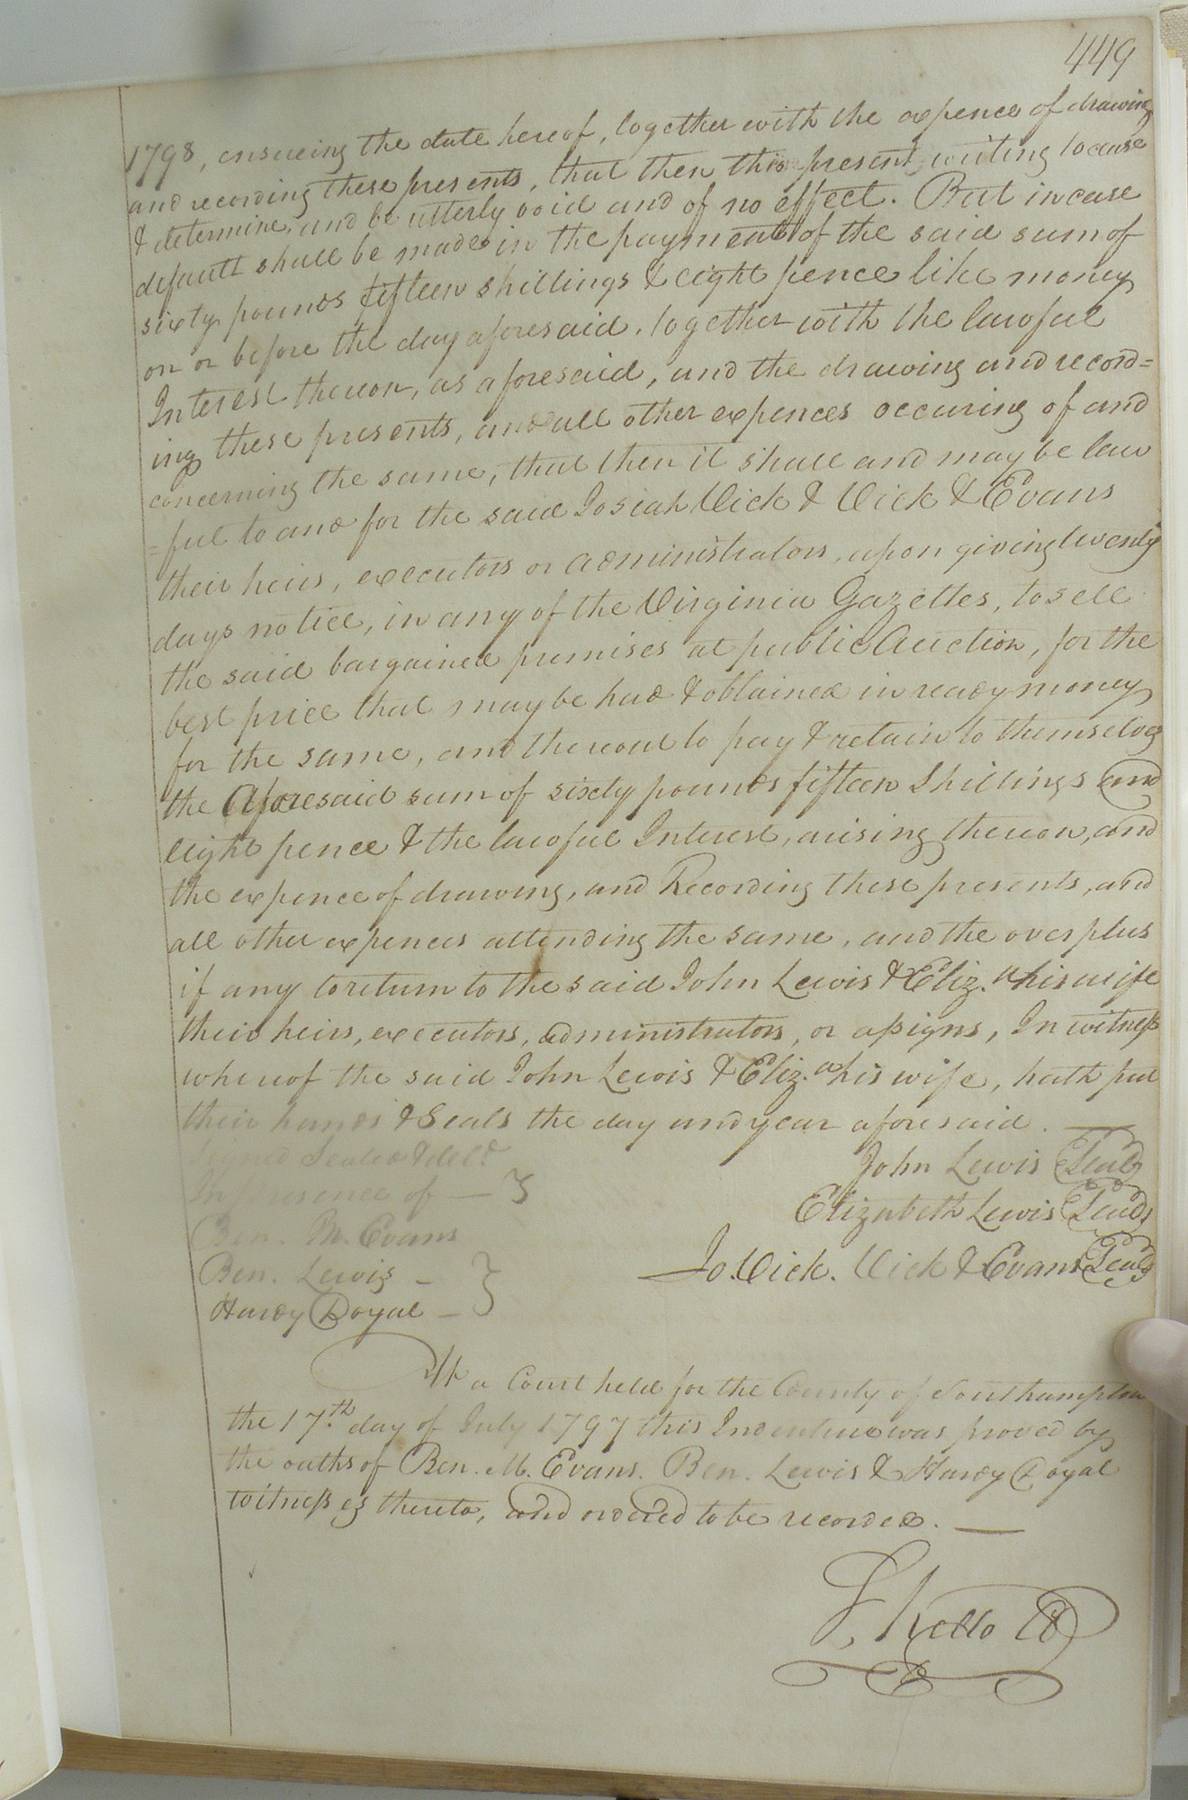 449
1798, ensueing the date hereof, together with the expence of drawing
and recording these presents, that then this present writing to cease
& determine, and be utterly void and of no effect. But in case
default shall be made in the payment of the said sum of
sixty pounds fifteen shillings & eight pence like money
on or before the day aforesaid, together with the lawful
Interest thereon, as aforesaid, and the drawing and record=
ing these presents, and all other expences occuring of and
concerning the same, that then it shall and may be law
=ful to and for the said Josiah Vick & Vick & Evans
their heirs, executors or administrators, upon giving twenty
days notice, in any of the Virginia Gazettes, to sell
the said bargained premises at public Auction, for the
best price that may be had & obtained in ready money
for the same, and thereout to pay & retain to themselves
the Aforesaid sum of sixty pounds fifteen Shillings and
eight pence & the lawful Interest, arising thereon, and
the expence of drawing, and Recording these presents, and
all other expences attending the same, and the overplus
if any to return to the said John Lewis & Eliz.a his wife
their heirs, executors, administrators, or assigns, In witness
whereof the said John Lewis & Eliz.a his wife, hath put
their hands & Seals the day and year aforesaid.
Signed Sealed & deld
In presence of
Ben. M. Evans
Ben. Lewis
Hardy Doyal
John Lewis Seal
Elizabeth Lewis Seal
Jo. Vick. Vick & Evans Seal
At a Court held for the County of Southampton
the 17.th day of July 1797 this Indenture was proved by
the oaths of Ben. M. Evans. Ben. Lewis & Hardy Doyal
witnesses thereto, and ordered to be recorded.
S. Kello Cl